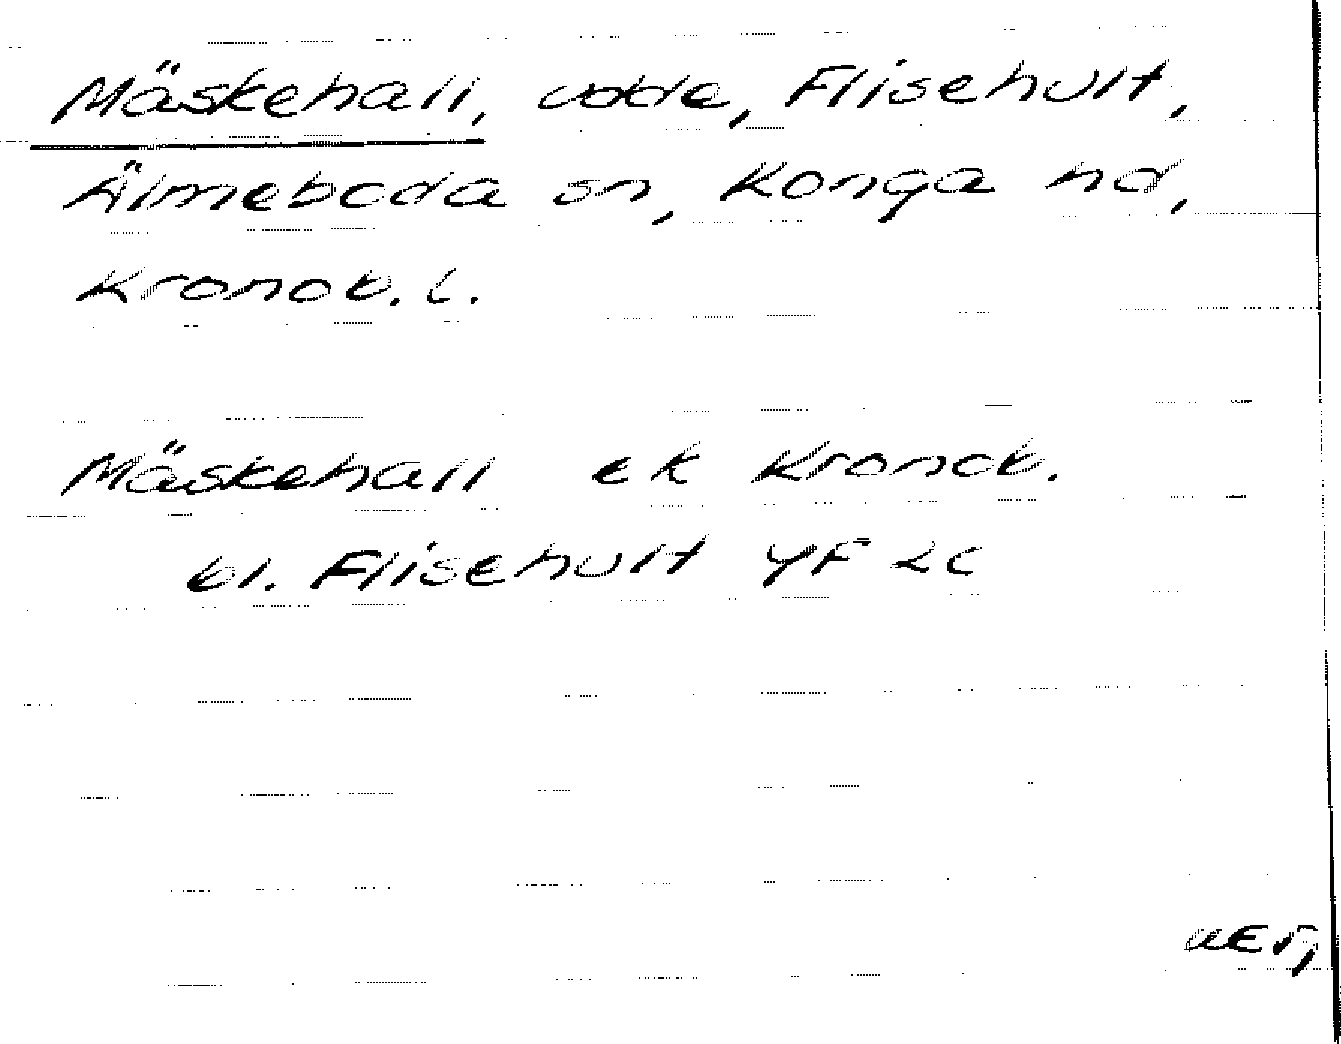 Mäskehall, udde, Flisehult,
Älmeboda sn, Konga hd,
Kronob. l.
Mäskehall ek Kronob.
bl. Flisehult 4F 2c